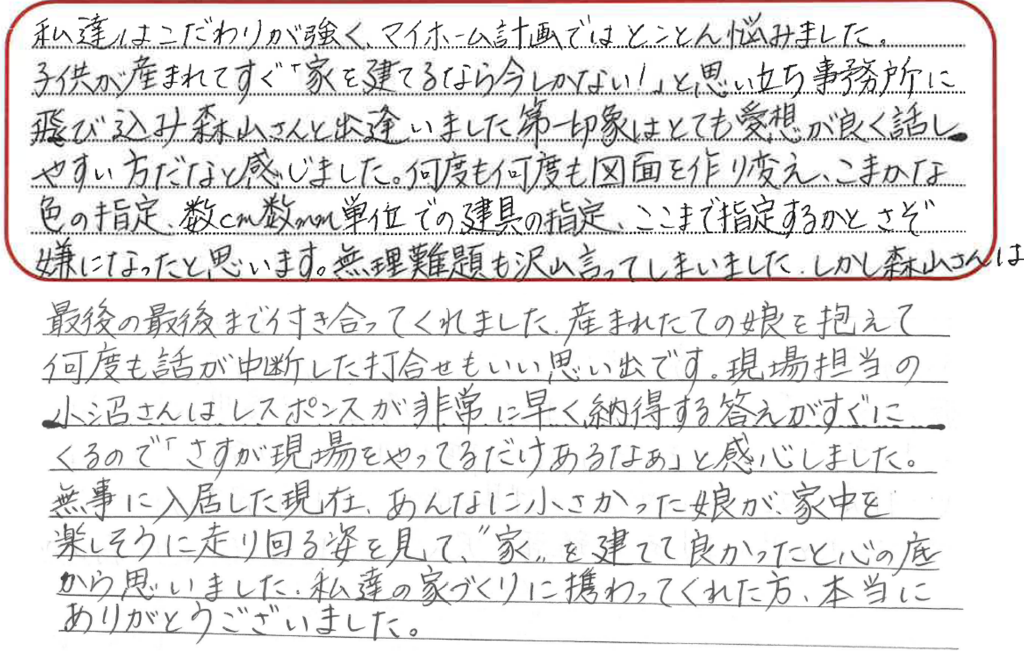 私達はこだわりが強く、マイホーム計画ではとことん悩みました。
子供が産まれてすぐ「家を建てるなら今しかない！」と思い立ち事務所に
飛び込み森山さんと出逢いました第一印象はとても愛想が良く話し
やすい方だなと感じました。何度も何度も図面を作り変え、こまかな
色の指定、数cm数mm単位での建具の指定、ここまで指定するかとさぞ
嫌になったと思います。無理難題も沢山言ってしまいました、しかし森山さんは
最後の最後まで付き合ってくれました、産まれたての娘を抱えて
何度も話が中断した打合せもいい思い出です。現場担当の
小沼さんはレスポンスが非常に早く納得する答えがすぐに
くるので「さすが現場をやってるだけあるなぁ」と感心しました。
無事に入居した現在、あんなに小さかった娘が、家中を
楽しそうに走り回る姿を見て、〝家〟を建てて良かったと心の底
から思いました、私達の家づくりに携わってくれた方、本当に
ありがとうございました。